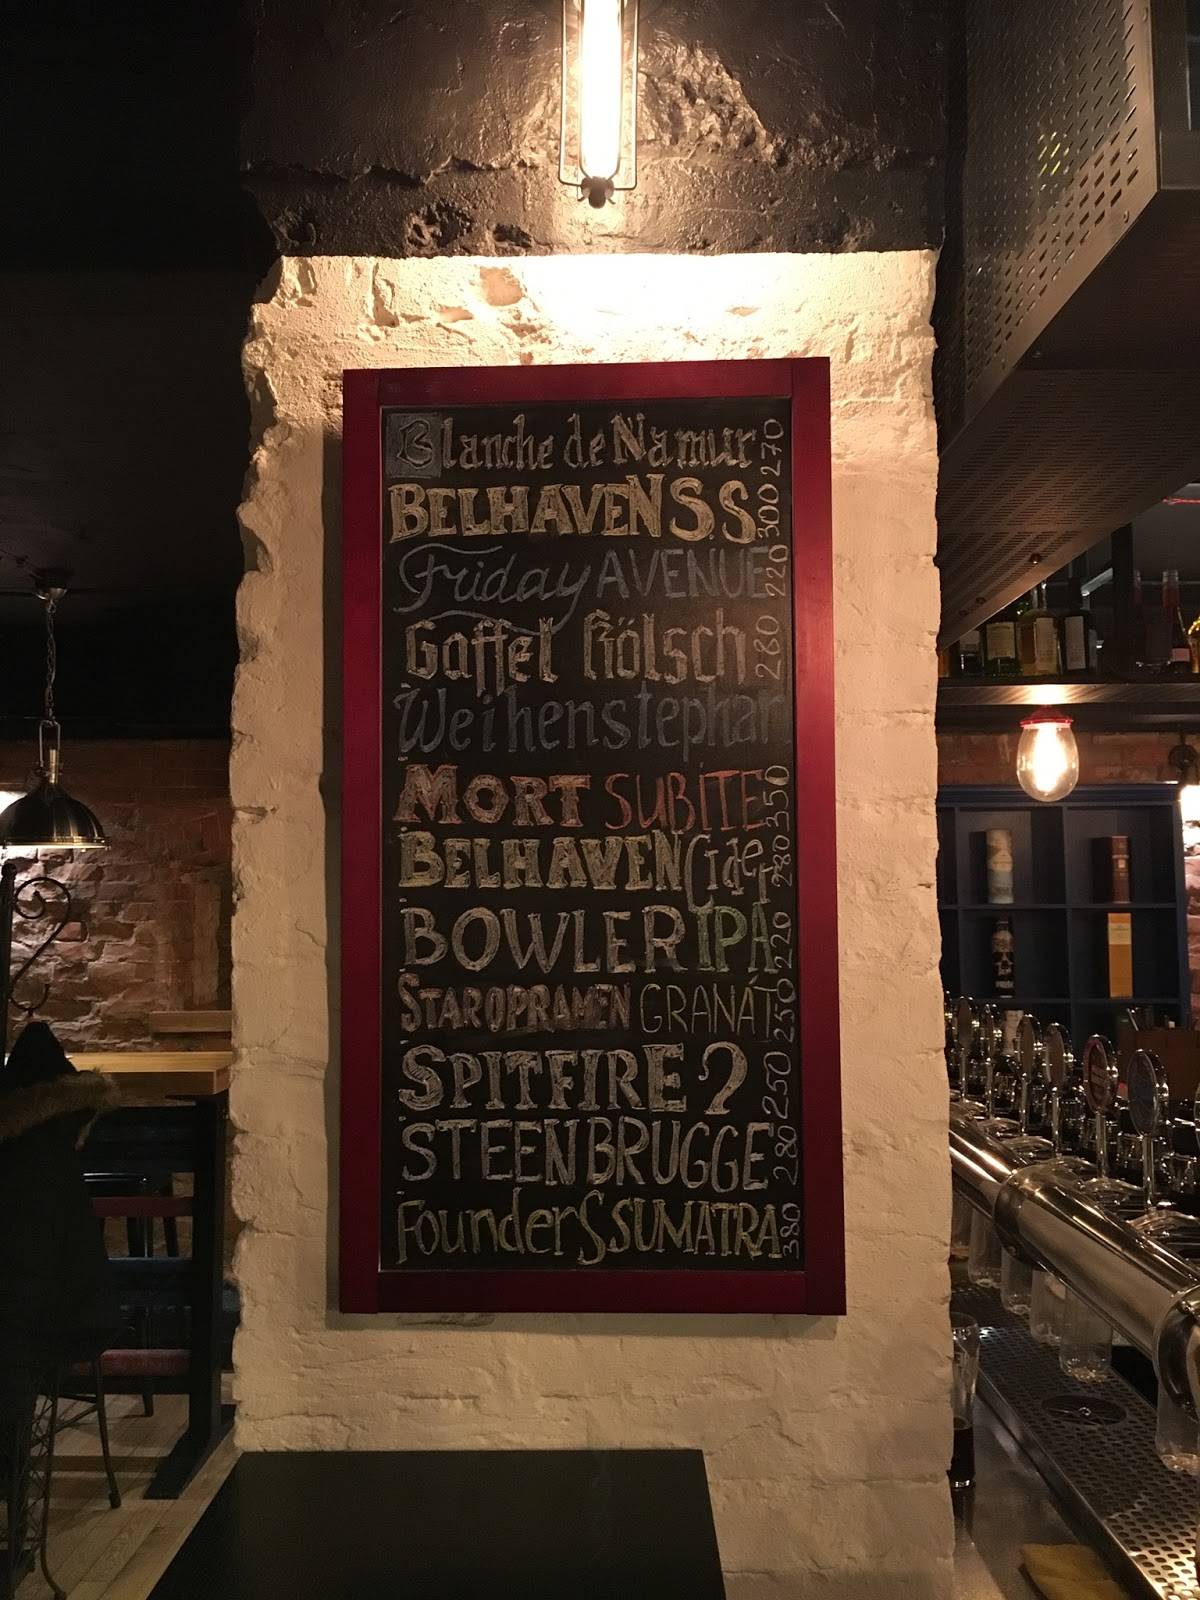 Blanche de Namur 270
BELHAVEN S.S 300
Friday AVENUE 220
Gaffel Kölsch 280
Weihenstephan
MORT SUBITE 350
BELHAVEN Cider 280
BOWLER IPA 220
STAROPRAMEN GRANÁT 250
SPITFIRE 2 250
STEENBRUGGE 280
FounderS SUMATRA 380